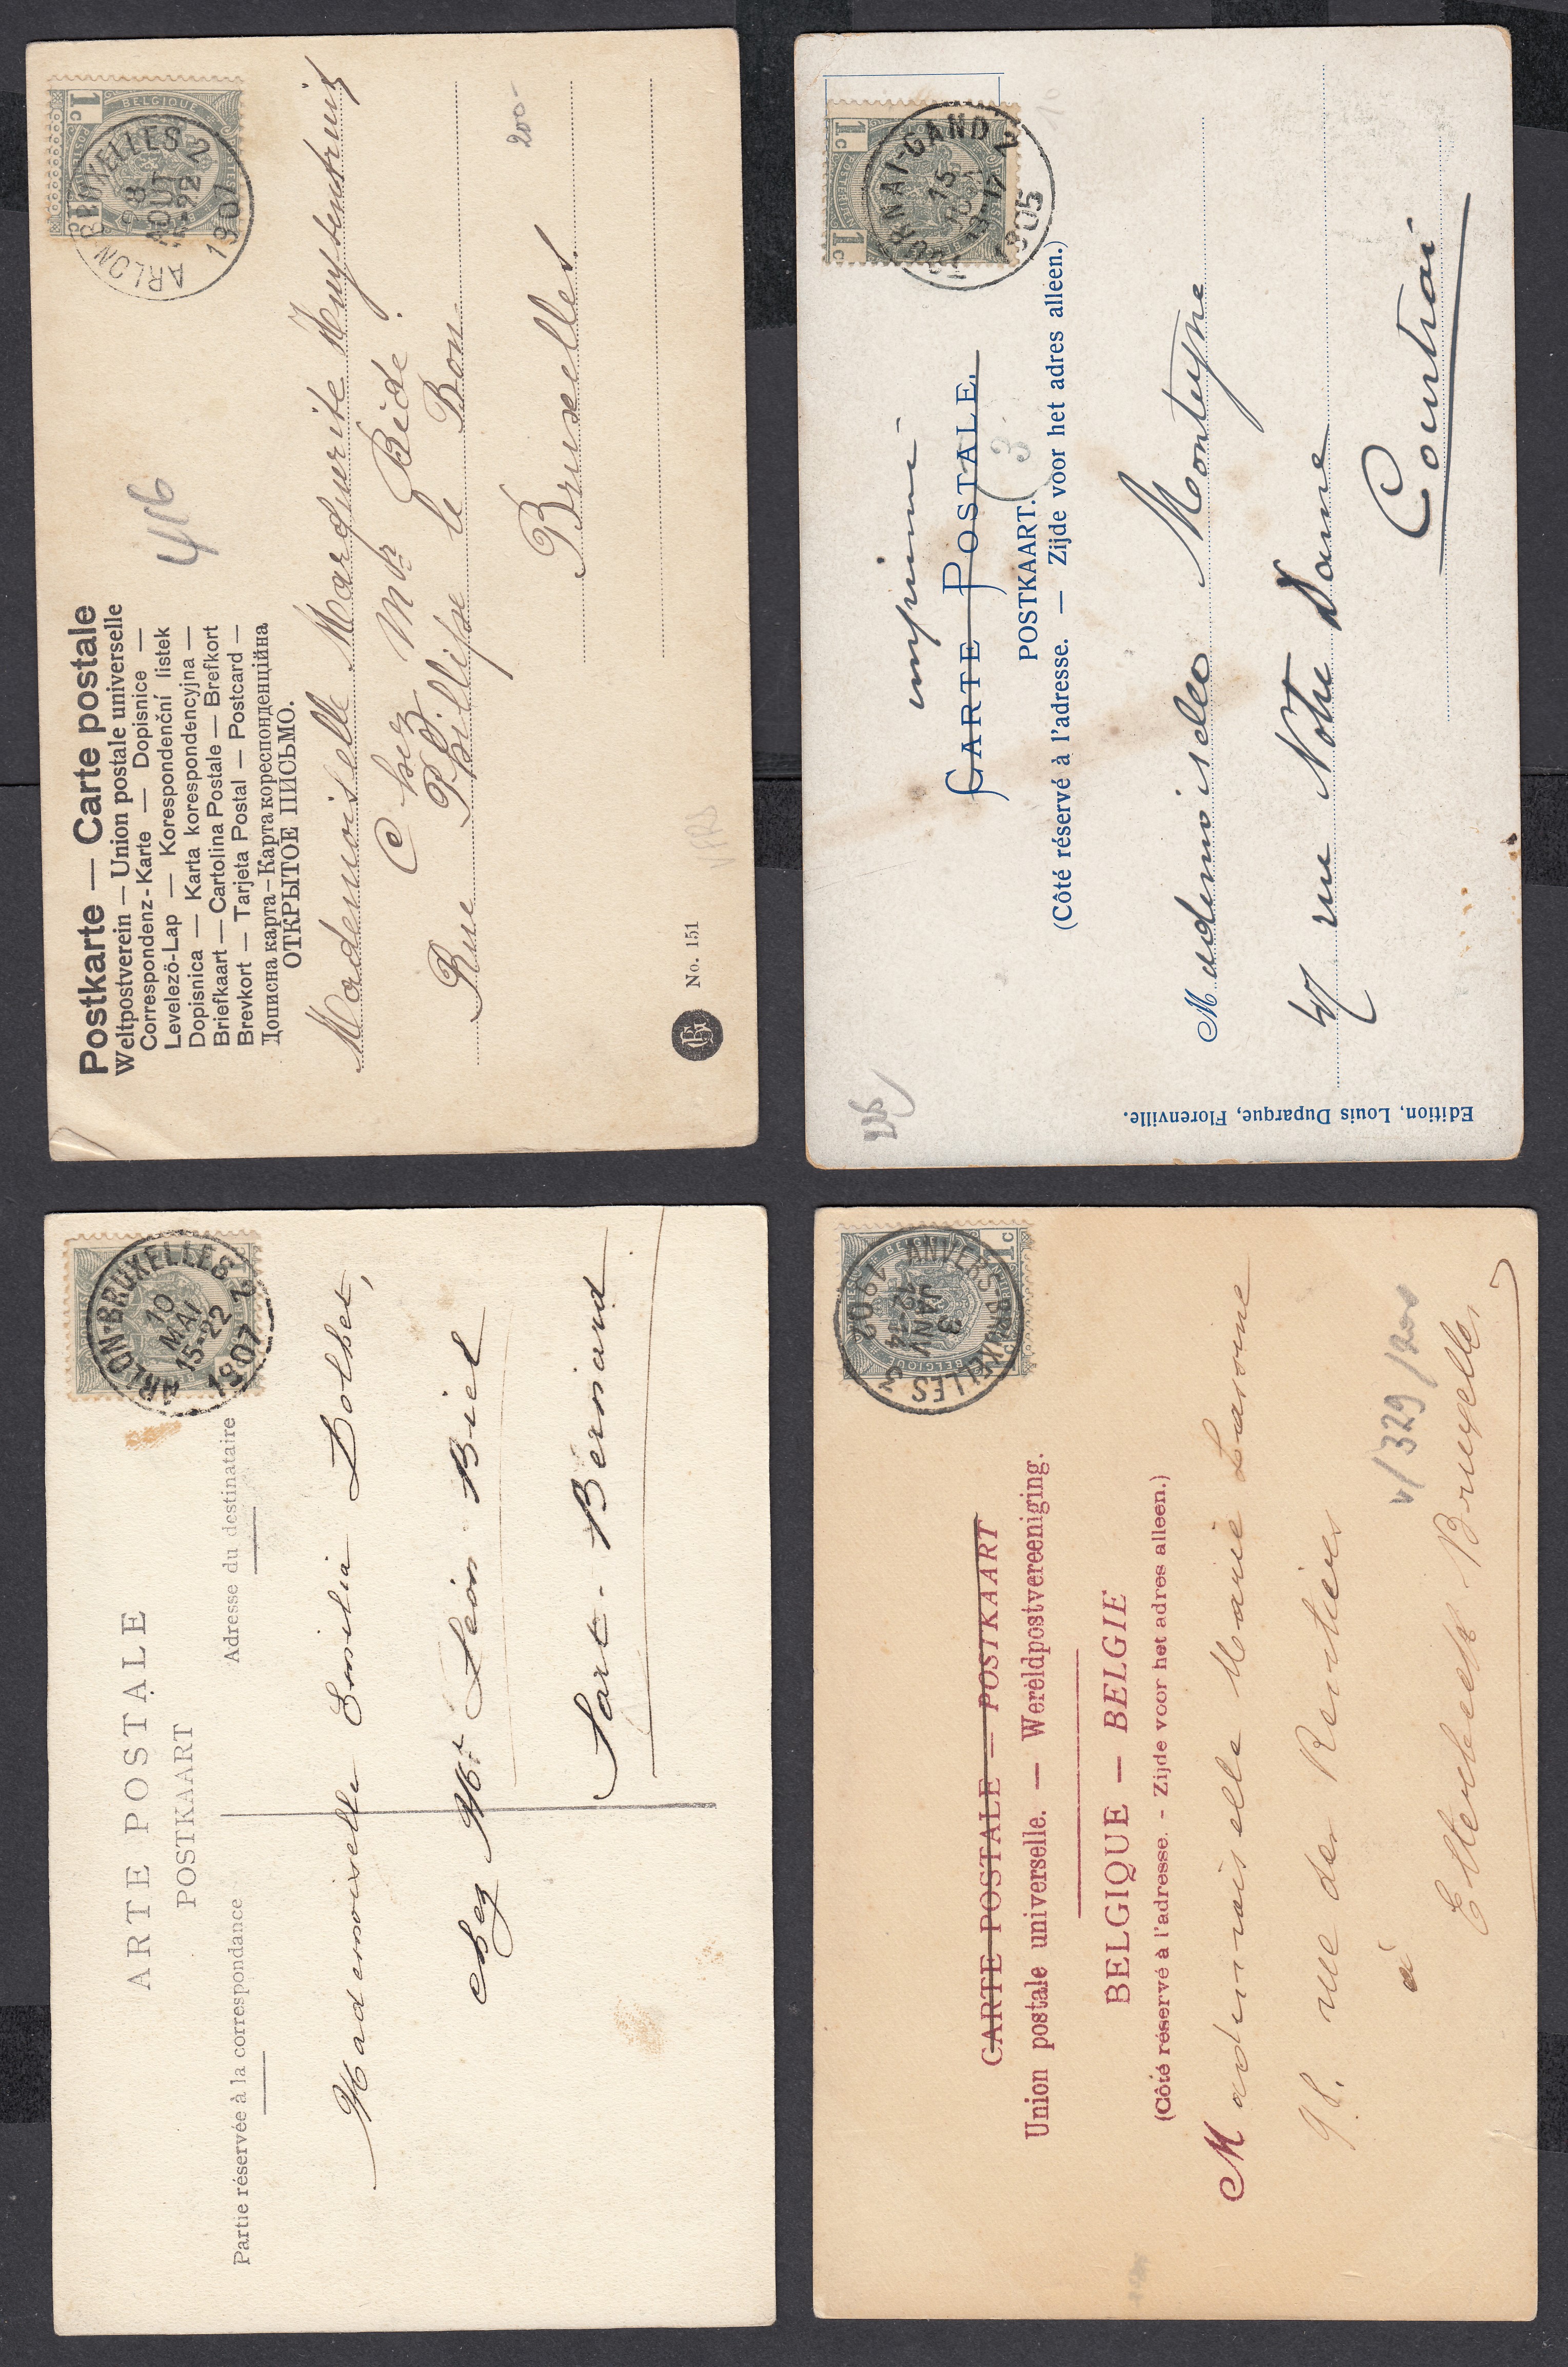 Postkarte — Carte postale
Weltpostverein — Union postale universelle
Correspondenz-Karte — Dopisnice —
Levelező-Lap — Korespondenční listek
Dopisnica — Karta korespondencyjna —
Briefkaart — Cartolina Postale — Brefkort
Brevkort — Tarjeta Postal — Postcard —
Дописна карта—Карта кореспонденційна
ОТКРЫТОЕ ПИСЬМО.
416
200-
BELGIQUE
1c
ARLON-BRUXELLES 2
8
AOUT
15-22
1907
Mademoiselle Marguerite
Chez Mr Bide
Rue Phillipe le Bon
Bruxelles.
No. 151
1c 1c
TOURNAI-GAND 2
15
13-17
1905
imprimé
CARTE POSTALE.
POSTKAART.
3
(Côté réservé à l'adresse. — Zijde voor het adres alleen.)
Mademoiselle Monteyne
47 rue Notre Dame
Courtrai
Edition, Louis Duparque, Florenville.
ARLON-BRUXELLES 2
10
MAI
15-22
1907
ARTE POSTALE
POSTKAART
Partie réservée à la correspondance
Adresse du destinataire
Mademoiselle Emilia Bothet,
chez Mr Léon Biel
Sart-Bernard
1c
BELGIQUE
ANVERS-BRUXELLES 3
3
JANV
12-14
1902
CARTE POSTALE — POSTKAART
Union postale universelle. — Wereldpostvereeniging.
BELGIQUE — BELGIE
(Côté réservé à l'adresse. - Zijde voor het adres alleen.)
Mademoiselle Marie Lasonne
91. rue des Rentiers
à
Etterbeek-Bruxelles
v/329/